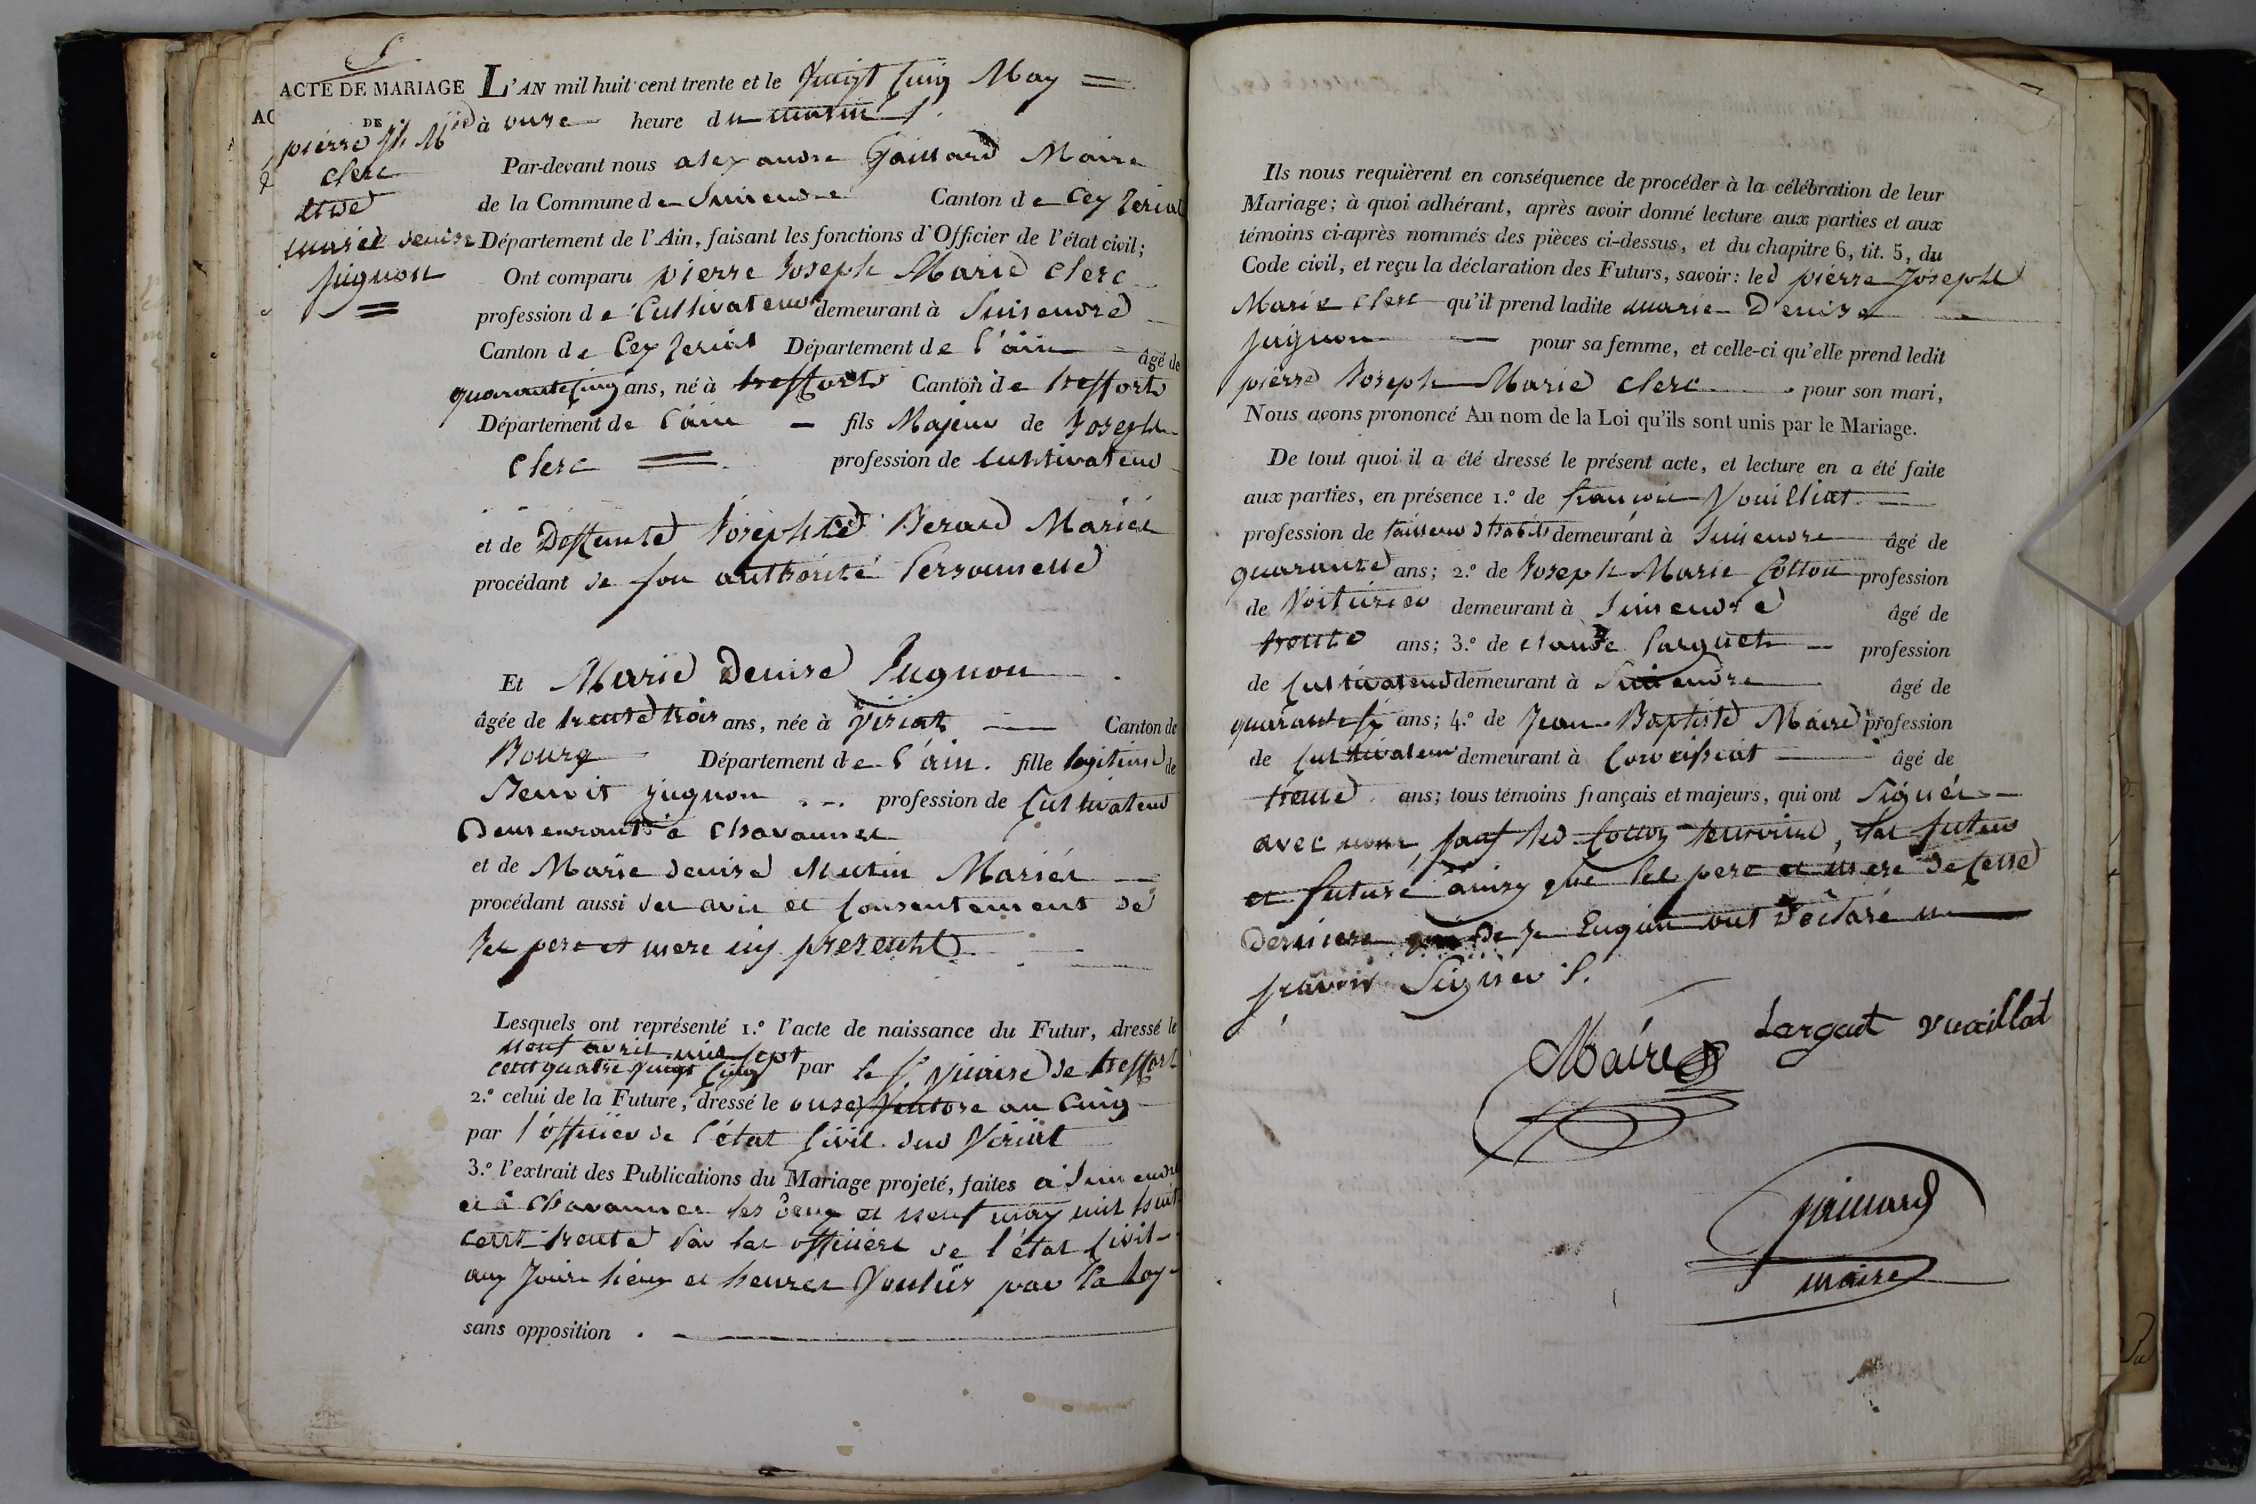 5
ACTE DE MARIAGE
DE
pierre Jh Mie
clerc
et de
marie denise
jugnon
L'AN mil huit cent trente et le Vingt Cinq May
à onze heure du matin
Par-devant nous alexandre Gaillard Maire
de la Commune de Simendre Canton de Ceyzeriat
Département de l'Ain, faisant les fonctions d'Officier de l'état civil;
Ont comparu pierre Joseph Marie Clerc
profession de Cultivateur demeurant à Simendre
Canton de Ceyzeriat Département de l'ain âgé de
quarante Cinq ans, né à treffort Canton de treffort
Département de l'ain fils Majeur de Joseph
Clerc profession de Cultivateur
et de Deffunte Josephte Berard Mariés
procédant de son authorité Personnelle
Et Marie Denise Jugnon
âgée de trente trois ans, née à Viriat Canton de
Bourg Département de l'ain. fille legitime de
Benoit jugnon profession de Cultivateur
Demeurant à Chavannes
et de Marie denise Mutin Mariés
procédant aussi des avis et Consentement de
ses pere et mere icy presents
Lesquels ont représenté 1.º l'acte de naissance du Futur, dressé le
neuf avril mil sept
cent quatre vingt Cinq par le S. Vicaire de treffort
2.º celui de la Future, dressé le onze Ventose an Cinq
par l'officier de l'état Civil de Viriat
3.º l'extrait des Publications du Mariage projeté, faites à Simendre
et à Chavannes les deux et neuf may mil huit
cent trente Par les officiers de l'état Civil
aux Jours lieux et heures Voulus par la loy
sans opposition .
Ils nous requièrent en conséquence de procéder à la célébration de leur
Mariage; à quoi adhérant, après avoir donné lecture aux parties et aux
témoins ci-après nommés des pièces ci-dessus, et du chapitre 6, tit. 5, du
Code civil, et reçu la déclaration des Futurs, savoir: led pierre Joseph
Marie Clerc qu'il prend ladite marie Denise
jugnon pour sa femme, et celle-ci qu'elle prend ledit
pierre Joseph Marie Clerc pour son mari,
Nous avons prononcé Au nom de la Loi qu'ils sont unis par le Mariage.
De tout quoi il a été dressé le présent acte, et lecture en a été faite
aux parties, en présence 1.º de françois Vouilliat
profession de tailleur d'habits demeurant à Simendre âgé de
quarante ans; 2.º de Joseph Marie Cotton profession
de Voiturier demeurant à Simendre âgé de
trente ans; 3.º de claude Larguet profession
de Cultivateur demeurant à Simendre âgé de
quarante six ans; 4.º de Jean Baptiste Maire profession
de Cultivateur demeurant à Corveissiat âgé de
trente ans; tous témoins français et majeurs, qui ont Signés
avec nous, sauf led Cotton temoins, les futur
et future ainsy que les pere et mere de Cette
derniere qui de ce Enquis ont déclaré ne
savoir Signer
Maire Largaet vuaillat
gaillard
maire